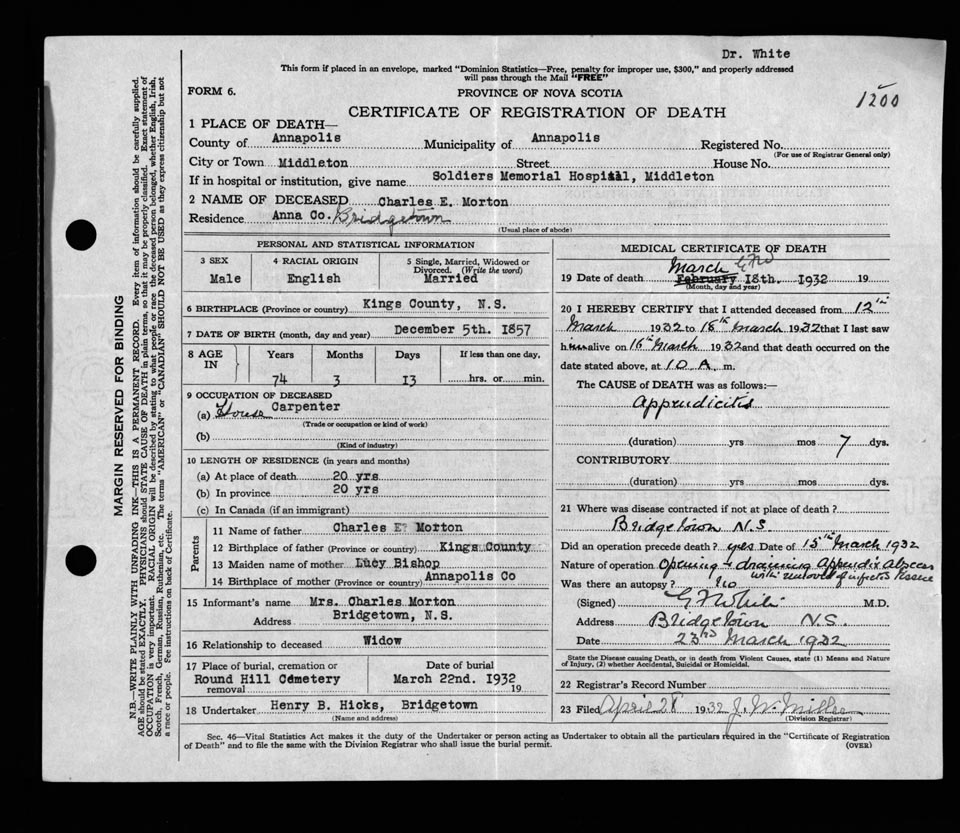 Dr. White
This form if placed in an envelope, marked "Dominion Statistics—Free, penalty for improper use, $300," and properly addressed
will pass through the Mail "FREE"
FORM 6.
PROVINCE OF NOVA SCOTIA
1200
CERTIFICATE OF REGISTRATION OF DEATH
1 PLACE OF DEATH—
County of Annapolis Municipality of Annapolis Registered No.
(For use of Registrar General only)
City or Town Middleton Street House No.
If in hospital or institution, give name Soldiers Memorial Hospital, Middleton
2 NAME OF DECEASED Charles E. Morton
Residence Anna Co. Bridgetown
(Usual place of abode)
PERSONAL AND STATISTICAL INFORMATION
3 SEX 4 RACIAL ORIGIN 5 Single, Married, Widowed or
Divorced. (Write the word)
Male English Married
6 BIRTHPLACE (Province or country) Kings County, N.S.
7 DATE OF BIRTH (month, day and year) December 5th. 1857
8 AGE IN Years Months Days If less than one day,
74 3 13 hrs. or min.
9 OCCUPATION OF DECEASED
(a) House Carpenter
(Trade or occupation or kind of work)
(b)
(Kind of industry)
10 LENGTH OF RESIDENCE (in years and months)
(a) At place of death 20 yrs
(b) In province 20 yrs
(c) In Canada (if an immigrant)
Parents
11 Name of father Charles E. Morton
12 Birthplace of father (Province or country) Kings County
13 Maiden name of mother Lucy Bishop
14 Birthplace of mother (Province or country) Annapolis Co
15 Informant's name Mrs. Charles Morton
Address Bridgetown, N.S.
16 Relationship to deceased Widow
17 Place of burial, cremation or removal Round Hill Cemetery Date of burial March 22nd. 1932 19
18 Undertaker Henry B. Hicks, Bridgetown
(Name and address)
MEDICAL CERTIFICATE OF DEATH
March GFW
19 Date of death February 18th. 1932 19
(Month, day and year)
20 I HEREBY CERTIFY that I attended deceased from 12th
March 1932 to 18th March 1932 that I last saw
him alive on 16th March 1932 and that death occurred on the
date stated above, at 10 A. m.
The CAUSE of DEATH was as follows:—
Appendicitis
(duration) yrs mos 7 dys.
CONTRIBUTORY
(duration) yrs mos dys.
21 Where was disease contracted if not at place of death?
Bridgetown N.S.
Did an operation precede death? yes Date of 15th March 1932
Nature of operation Opening & draining Appendix Abscess
with removal of infected tissue
Was there an autopsy? No
(Signed) G F White M.D.
Address Bridgetown N.S.
Date 23rd March 1932
State the Disease causing Death, or in death from Violent Causes, state (1) Means and Nature
of Injury, (2) whether Accidental, Suicidal or Homicidal.
22 Registrar's Record Number
23 Filed April 28 1932 J. W. Miller
(Division Registrar)
Sec. 46—Vital Statistics Act makes it the duty of the Undertaker or person acting as Undertaker to obtain all the particulars required in the "Certificate of Registration
of Death" and to file the same with the Division Registrar who shall issue the burial permit. (OVER)
MARGIN RESERVED FOR BINDING
N.B.—WRITE PLAINLY WITH UNFADING INK—THIS IS A PERMANENT RECORD. Every item of information should be carefully supplied.
AGE should be stated EXACTLY. PHYSICIANS should STATE CAUSE OF DEATH in plain terms, so that it may be properly classified. Exact statement of
OCCUPATION is very important. RACIAL ORIGIN will be described by stating to what people or race the deceased person belonged, whether English, Irish,
Scotch, French, German, Russian, Ruthenian, etc. The terms "AMERICAN" or "CANADIAN" SHOULD NOT BE USED as they express citizenship but not
a race or people. Fee instructions on back of Certificate.